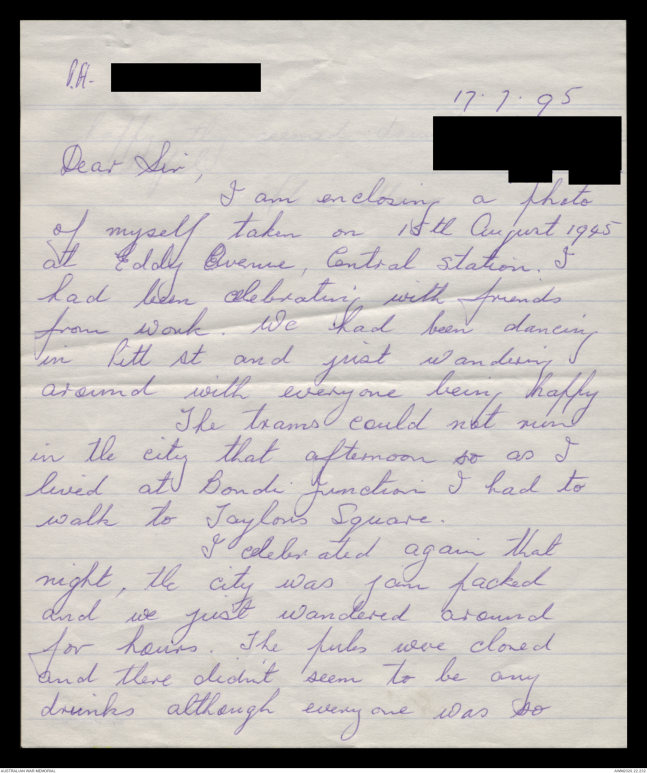 P.H.
17.7.95
Dear Sir,
I am enclosing a photo
of myself taken on 15th August 1945
at Eddy Avenue, Central Station. I
had been celebrating with friends
from work. We had been dancing
in Pitt St and just wandering
around with everyone being happy
The trams could not run
in the city that afternoon so as I
lived at Bondi Junction I had to
walk to Taylors Square.
I celebrated again that
night, the city was jam packed
and we just wandered around
for hours. The pubs were closed
and there didn't seem to be any
drinks although everyone was so
AUSTRALIAN WAR MEMORIAL